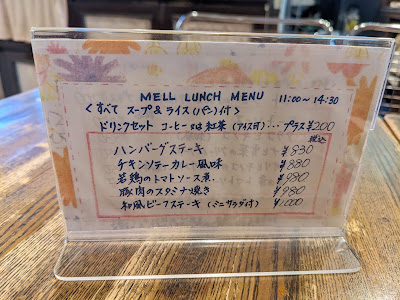 MELL LUNCH MENU 11:00～14:30
<すべて スープ&ライス(パン)付>
ドリンクセット コーヒーor紅茶(アイス可)…プラス¥200
税込
ハンバーグステーキ ¥830
チキンソテーカレー風味 ¥880
若鶏のトマトソース煮. ¥980
豚肉のスタミナ焼き ¥980
和風ビーフステーキ (ミニサラダ付) ¥1000